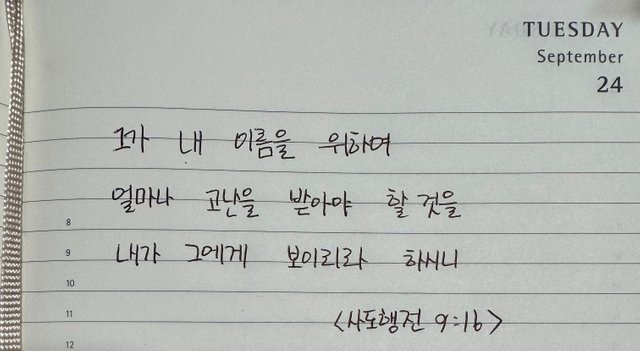 TUESDAY
September
24
그가 내 이름을 위하여
얼마나 고난을 받아야 할 것을
8
내가 그에게 보이리라 하시니
9
10
<사도행전 9:16>
11
12